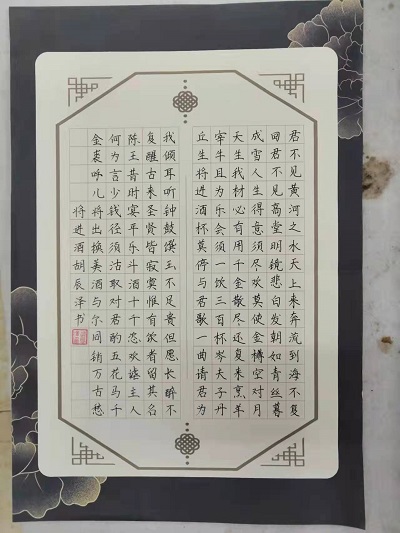 君不见黄河之水天上来奔流到海不复
回君不见高堂明镜悲白发朝如青丝暮
成雪人生得意须尽欢莫使金樽空对月
天生我材必有用千金散尽还复来烹羊
宰牛且为乐会须一饮三百杯岑夫子丹
丘生将进酒杯莫停与君歌一曲请君为
我倾耳听钟鼓馔玉不足贵但愿长醉不
复醒古来圣贤皆寂寞惟有饮者留其名
陈王昔时宴平乐斗酒十千恣欢谑主人
何为言少钱径须沽取对君酌五花马千
金裘呼儿将出换美酒与尔同销万古愁
将进酒胡辰泽书